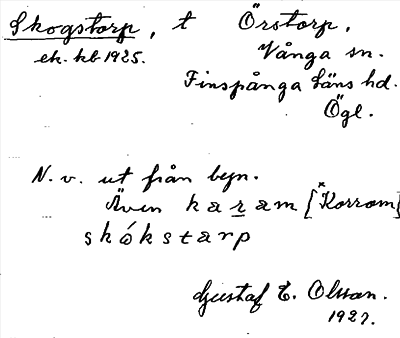 Skogstorp, t Örstorp,
ek. kb 1925. Vånga sn.
Finspånga läns hd.
Ögl.
N. v. ut från byn.
Även karam [*Korram]
skókstarp
Gustaf E. Olsson.
1927.